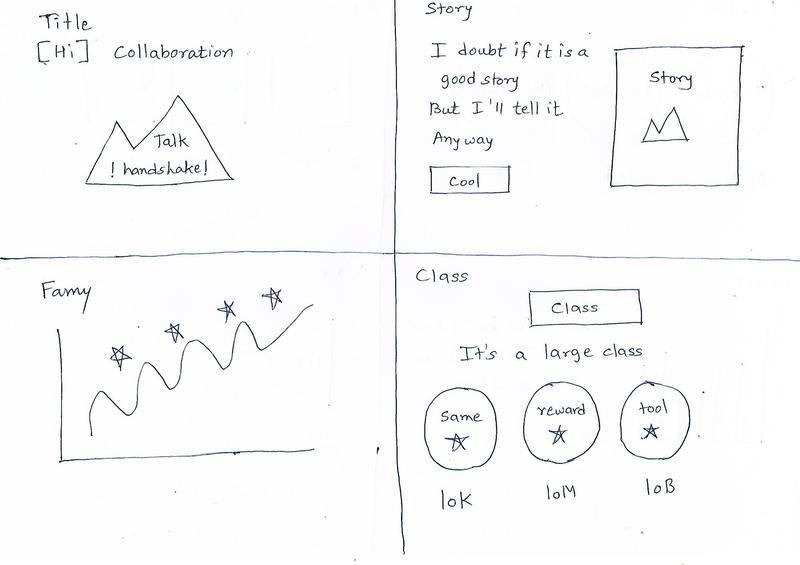 Title
[Hi] Collaboration
Talk
! handshake!
Story
I doubt if it is a
good story
But I'll tell it
Any way
Cool
Story
Famy
Class
Class
It's a large class
Same
reward
tool
10K
10M
10B